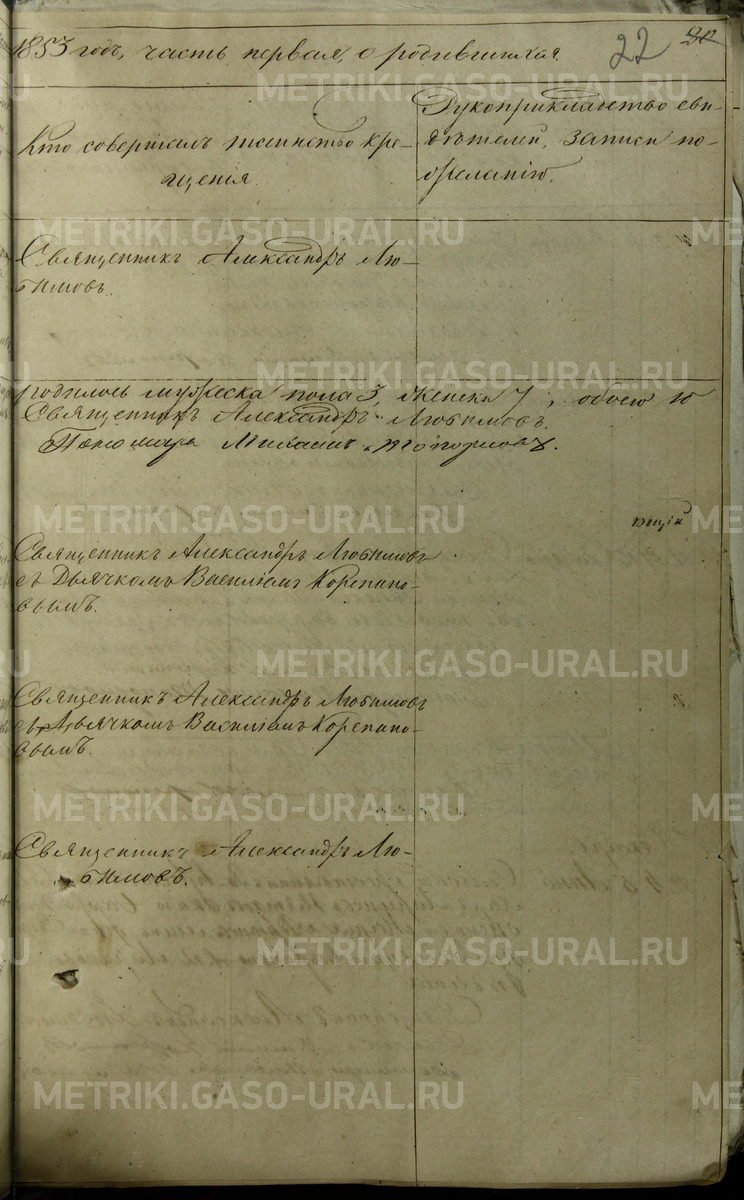 1853 годъ, часть первая, о родившихся
22
Кто совершалъ таинство кре-
щенія
Рукоприкладство сви-
дѣтелей, записи по-
желанію.
Священникъ Александръ Лю-
бимовъ.
родилось мужеска пола 3, женска 7, обоего 10
Священникъ Александръ Любимовъ.
Пономарь Михаилъ
Священникъ Александръ Любимовъ
съ Дьячкомъ Василіемъ Корепано-
вымъ.
Священникъ Александръ Любимовъ
съ Дьячкомъ Василіемъ Корепано-
вымъ.
Священникъ Александръ Лю-
бимовъ.
METRIKI.GASO-URAL.RU